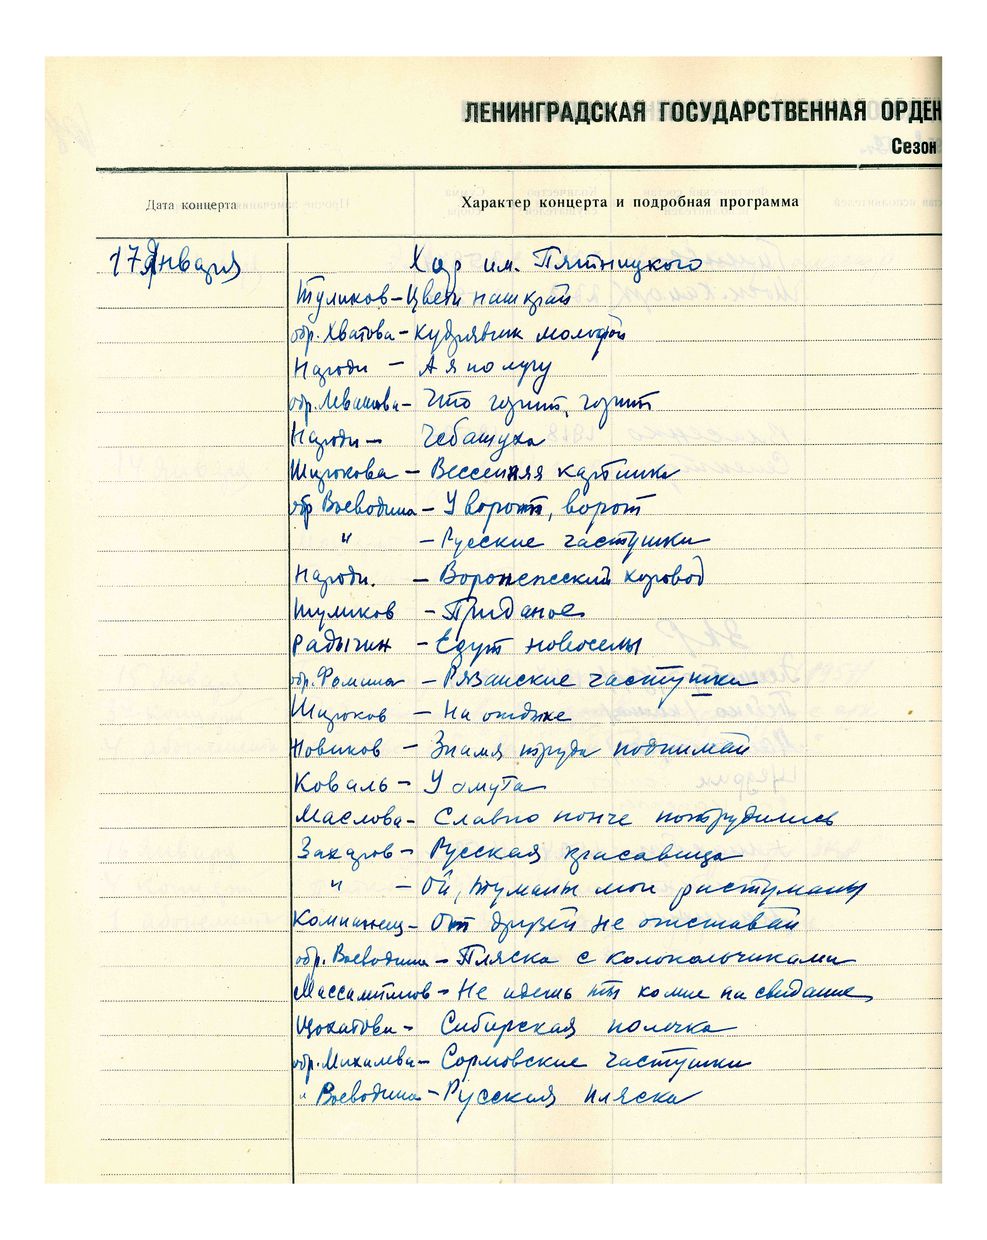 ЛЕНИНГРАДСКАЯ ГОСУДАРСТВЕННАЯ ОРДЕН
Сезон
Дата концерта
Характер концерта и подробная программа
17 Января
Хор им. Пятницкого
Туликов – Цвети наш край
обр. Хватова – Кудрявчик молодой
Народн – А я по лугу
обр. Левашова – Что горит, горит
Народн – Чебатуха
Широкова – Весенняя картинка
обр Воеводина – У ворот, ворот
" – Русские частушки
Народн. – Воронежский хоровод
Туликов – Приданое
Радыгин – Едут новоселы
обр. Фомина – Рязанские частушки
Широков – На отдыхе
Новиков – Знамя труда поднимай
Коваль – У омута
Маслова – Славно нонче потрудились
Захаров – Русская красавица
" – Ой, туманы мои растуманы
Компанеец – От друзей не отставай
обр. Воеводина – Пляска с колокольчиками
Массалитинов – Не идешь ты ко мне на свидание
– Сибирская полечка
обр. Михалева – Сормовские частушки
" Воеводина – Русская пляска